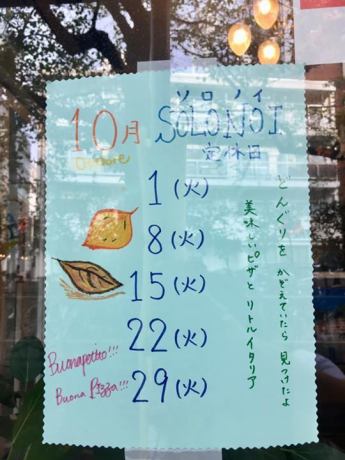 ソロノイ
10月 SOLONOI
Ottobre
定休日
1 (火)
8 (火)
15 (火)
22 (火)
29 (火)
どんぐりを かぞえていたら 見つけたよ
美味しいピザと リトルイタリア
Buonapetito!!!
Buona Pizza!!!